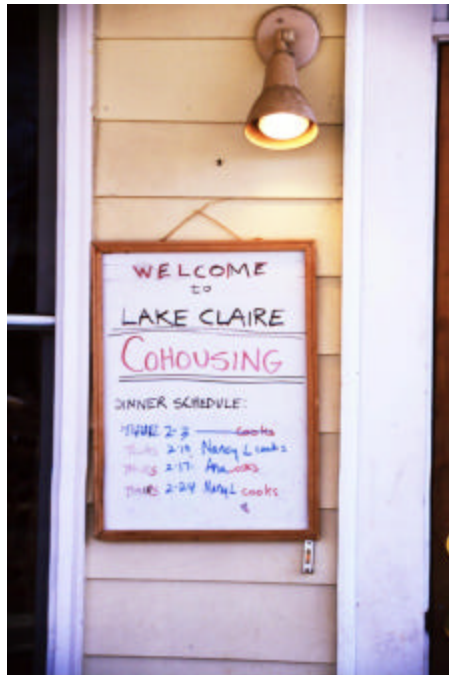 WELCOME
to
LAKE CLAIRE
COHOUSING
DINNER SCHEDULE:
THUR 2-3 cooks
THURS 2-10 Nancy L cooks
THURS 2-17 Ana
THURS 2-24 Nancy L cooks